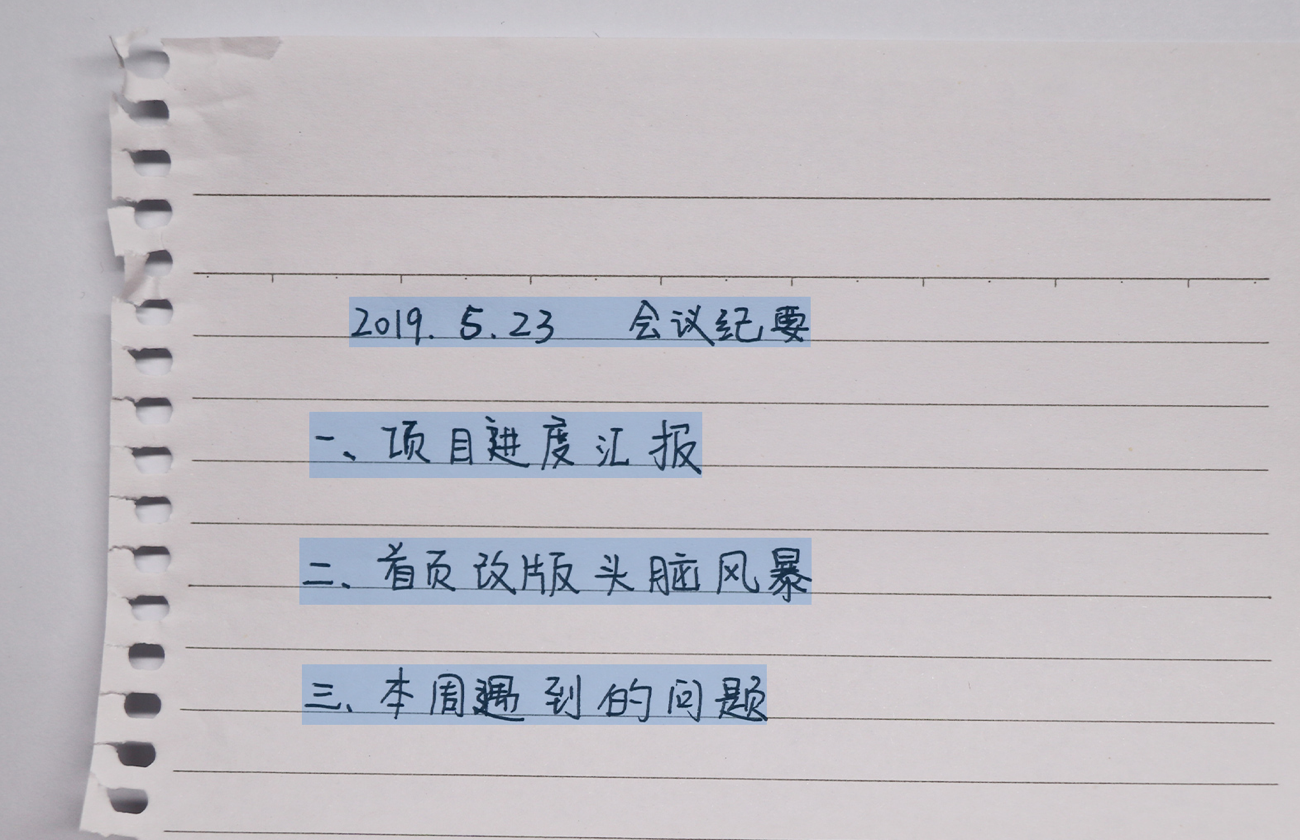 2019.5.23 会议纪要
一、项目进度汇报
二、首页改版头脑风暴
三、本周遇到的问题